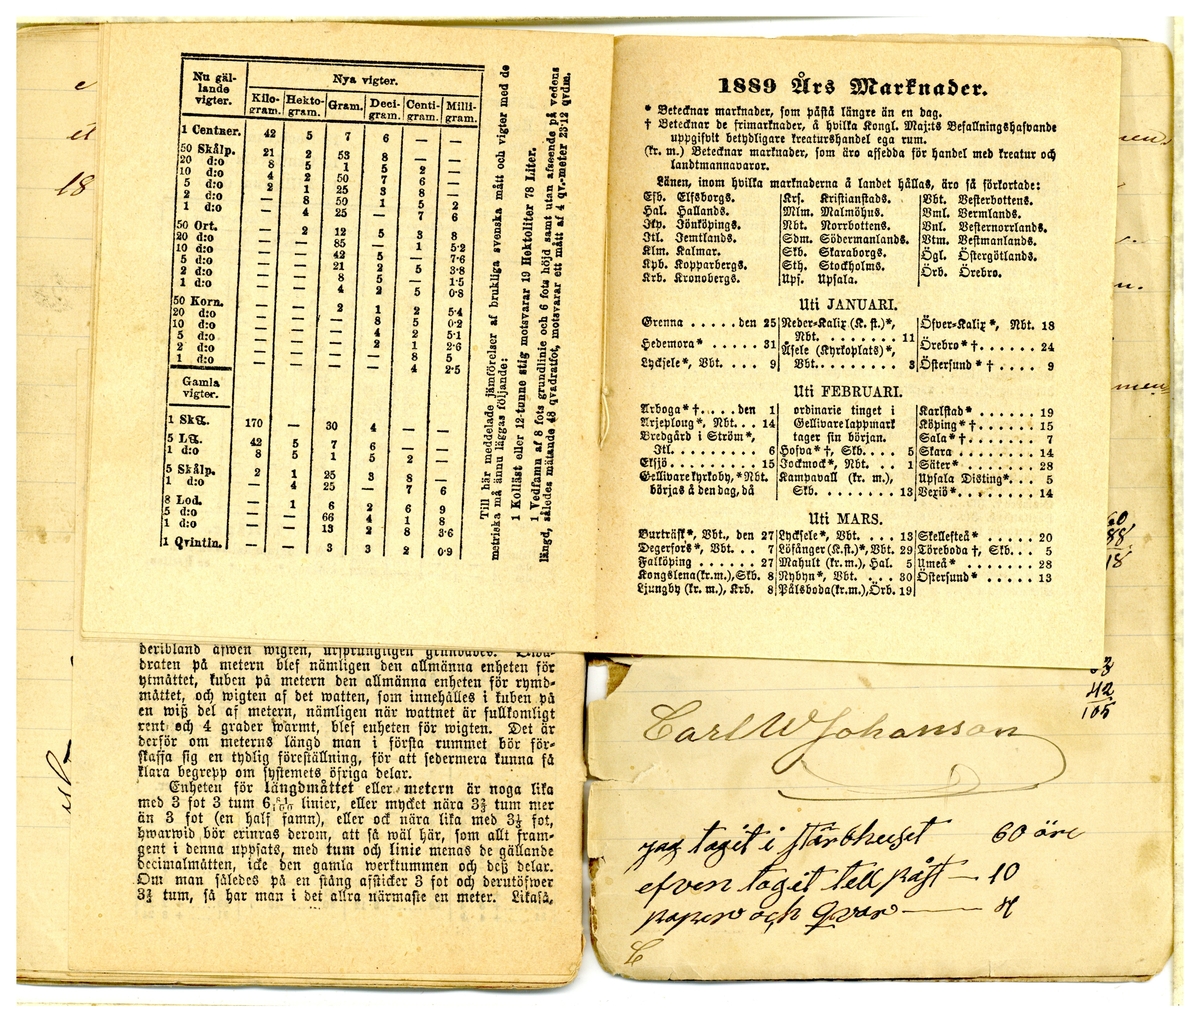 Nu gäl-
lande
vigter.
Nya vigter.
Kilo-
gram. Hekto-
gram. Gram. Deci-
gram. Centi-
gram. Milli-
gram.
1 Centner. 42 5 7 6 — —
50 Skålp. 21 2 53 8 — —
20 d:o 8 5 1 5 2 —
10 d:o 4 2 50 7 6 —
5 d:o 2 1 25 3 8 —
2 d:o — 8 50 1 5 2
1 d:o — 4 25 — 7 6
50 Ort. — 2 12 5 3 8
20 d:o — — 85 — 1 5·2
10 d:o — — 42 5 — 7·6
5 d:o — — 21 2 5 3·8
2 d:o — — 8 5 — 1·5
1 d:o — — 4 2 5 0·8
50 Korn. — — 2 1 2 5·4
20 d:o — — — 8 5 0·2
10 d:o — — — 4 2 5·1
5 d:o — — — 2 1 2·6
2 d:o — — — — 8 5
1 d:o — — — — 4 2·5
Gamla
vigter.
1 Sk℔. 170 — 30 4 — —
5 L℔. 42 5 7 6 — —
1 d:o 8 5 1 5 2 —
5 Skålp. 2 1 25 3 8 —
1 d:o — 4 25 — 7 6
8 Lod. — 1 6 2 6 9
5 d:o — — 66 4 1 8
1 d:o — — 13 2 8 3·6
1 Qvintin. — — 3 3 2 0·9
Till här meddelade jämförelser af brukliga svenska mått och vigter med de
metriska må ännu läggas följande:
1 Kolläst eller 12-tunne stig motsvarar 19 Hektoliter 78 Liter.
1 Vedfamn af 8 fots grundlinie och 6 fots höjd samt utan afseende på vedens
längd, således mätande 48 qvadratfot, motsvarar ett mått af 4 qv.-meter 23·12 qvdm.
1889 Års Marknader.
* Betecknar marknader, som påstå längre än en dag.
† Betecknar de frimarknader, å hvilka Kongl. Maj:ts Befallningshafvande
uppgifvit betydligare kreaturshandel ega rum.
(kr. m.) Betecknar marknader, som äro afsedda för handel med kreatur och
landtmannavaror.
Länen, inom hvilka marknaderna å landet hållas, äro så förkortade:
Efb. Elfsborgs.
Hal. Hallands.
Jkp. Jönköpings.
Jtl. Jemtlands.
Klm. Kalmar.
Kpb. Kopparbergs.
Krb. Kronobergs.
Krs. Kristianstads.
Mlm. Malmöhus.
Nbt. Norrbottens.
Sdm. Södermanlands.
Skb. Skaraborgs.
Sth. Stockholms.
Ups. Upsala.
Vbt. Vesterbottens.
Vml. Vermlands.
Vnl. Vesternorrlands.
Vtm. Vestmanlands.
Ögl. Östergötlands.
Örb. Örebro.
Uti JANUARI.
Grenna . . . . . den 25
Hedemora* . . . . . 31
Lycksele*, Vbt. . . . 9
Neder-Kalix (K. st.)*,
Nbt. . . . . . . . 11
Åsele (Kyrkoplats)*,
Vbt. . . . . . . . 3
Öfver-Kalix*, Nbt. 18
Örebro*† . . . . . . 24
Östersund*† . . . . 9
Uti FEBRUARI.
Arboga*† . . . den 1
Arjeploug*, Nbt. . . 14
Bredgård i Ström*,
Jtl. . . . . . . . 6
Eksjö . . . . . . . 15
Gellivare kyrkoby,* Nbt.
börjas å den dag, då
ordinarie tinget i
Gellivare lappmark
tager sin början.
Hofva*†, Skb. . . . 5
Jockmock*, Nbt. . . 1
Kampavall (kr. m.),
Skb. . . . . . . . 13
Karlstad* . . . . . . 19
Köping*† . . . . . . 15
Sala*† . . . . . . . 7
Skara . . . . . . . . 14
Säter* . . . . . . . 28
Upsala Disting*. . . 5
Vexiö* . . . . . . . 14
Uti MARS.
Burträsk*, Vbt., den 27
Degerfors*, Vbt. . . 7
Falköping . . . . . 27
Kongslena (kr. m.), Skb. 8
Ljungby (kr. m.), Krb. 8
Lycksele*, Vbt. . . . 13
Löfånger (K. st.)*, Vbt. 29
Mahult (kr. m.), Hal. 5
Nybyn*, Vbt. . . . 30
Pålsboda (kr. m.), Örb. 19
Skellefteå* . . . . . 20
Töreboda †, Skb. . . 5
Umeå* . . . . . . . 28
Östersund* . . . . . 13
deribland äfwen wigten, ursprungligen grundades.
draten på metern blef nämligen den allmänna enheten för
ytmåttet, kuben på metern den allmänna enheten för rymd-
måttet, och wigten af det watten, som innehålles i kuben på
en wiß del af metern, nämligen när wattnet är fullkomligt
rent och 4 grader warmt, blef enheten för wigten. Det är
derför om meterns längd man i första rummet bör för-
skaffa sig en tydlig föreställning, för att sedermera kunna få
klara begrepp om systemets öfriga delar.
Enheten för längdmåttet eller metern är noga lika
med 3 fot 3 tum 6 81/100 linier, eller mycket nära 3⅔ tum mer
än 3 fot (en half famn), eller ock nära lika med 3⅓ fot,
hwarwid bör erinras derom, att så wäl här, som allt fram-
gent i denna uppsats, med tum och linie menas de gällande
decimalmåtten, icke den gamla werktummen och deß delar.
Om man således på en stång afsticker 3 fot och derutöfwer
3⅔ tum, så har man i det allra närmaste en meter. Likaså,
Carl W Johanson
jag tagit i stärbhuset 60 öre
efven tagit tell påst — 10
paper och qvar — 4
60
88
18
42
105
18